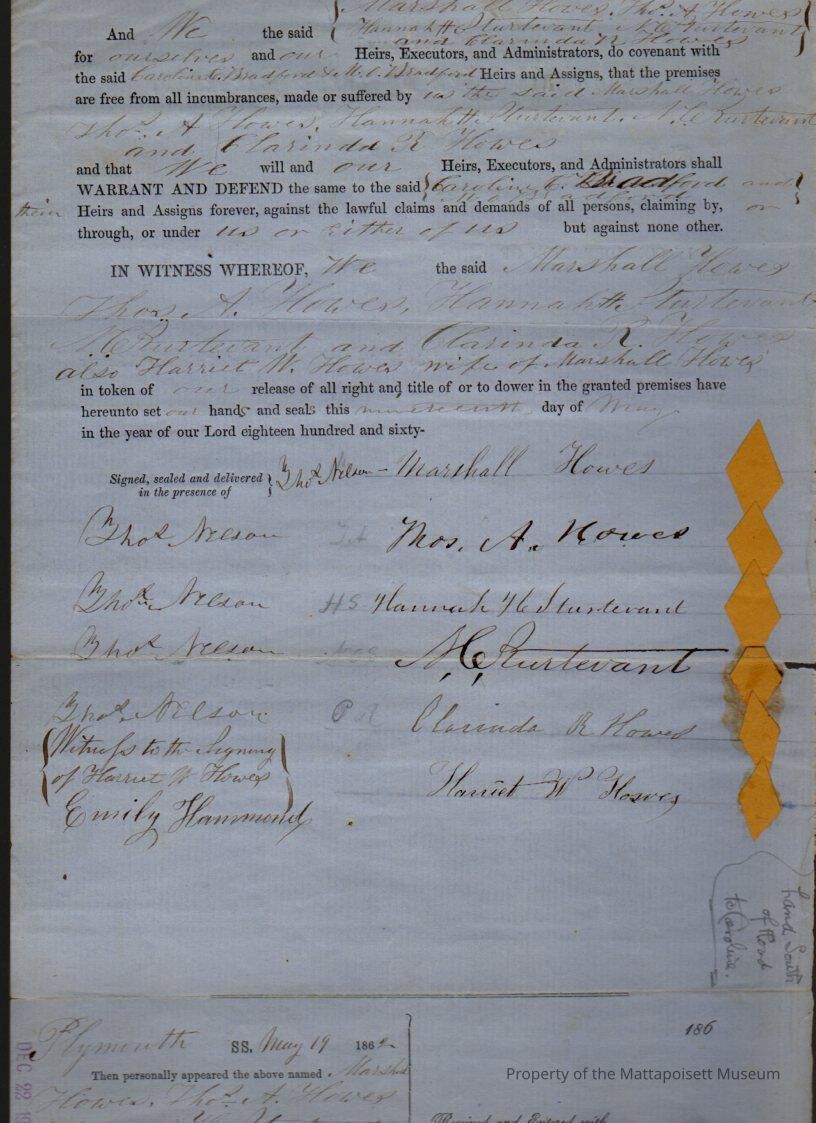 Marshall Howes, Thos. A Howes
And We the said { Hannah H Sturtevant N C Sturtevant }
and Clarinda R Howes
for ourselves and our Heirs, Executors, and Administrators, do covenant with
the said Caroline C. Bradford & Bradford Heirs and Assigns, that the premises
are free from all incumbrances, made or suffered by us the said Marshall Howes
Thos. A Howes, Hannah H. Sturtevant. N. C Sturtevant
and Clarinda R Howes
and that We will and our Heirs, Executors, and Administrators shall
WARRANT AND DEFEND the same to the said { Caroline C. Bradford and }
their Heirs and Assigns forever, against the lawful claims and demands of all persons, claiming by, or
through, or under us or either of us but against none other.
IN WITNESS WHEREOF, We the said Marshall Howes
Thos. A. Howes, Hannah H. Sturtevant
N C Sturtevant and Clarinda R. Howes
also Harriet W. Howes wife of Marshall Howes
in token of our release of all right and title of or to dower in the granted premises have
hereunto set our hands and seals this day of May
in the year of our Lord eighteen hundred and sixty-
Signed, sealed and delivered } Thos Nelson - Marshall Howes
in the presence of
Thos Nelson Thos. A. Howes
Thos. Nelson HS Hannah H Sturtevant
Thos Nelson N, C, Sturtevant
Thos. Nelson Clarinda R Howes
{ Witness to the Signing }
of Harriet W Howes Harriet W Howes
Emily Hammond
Land South
of Road
to Caroline.
186
Plymouth SS. May 19 1862
Then personally appeared the above named Marshall
Howes, Thos. A. Howes
Property of the Mattapoisett Museum
DEC 22 19